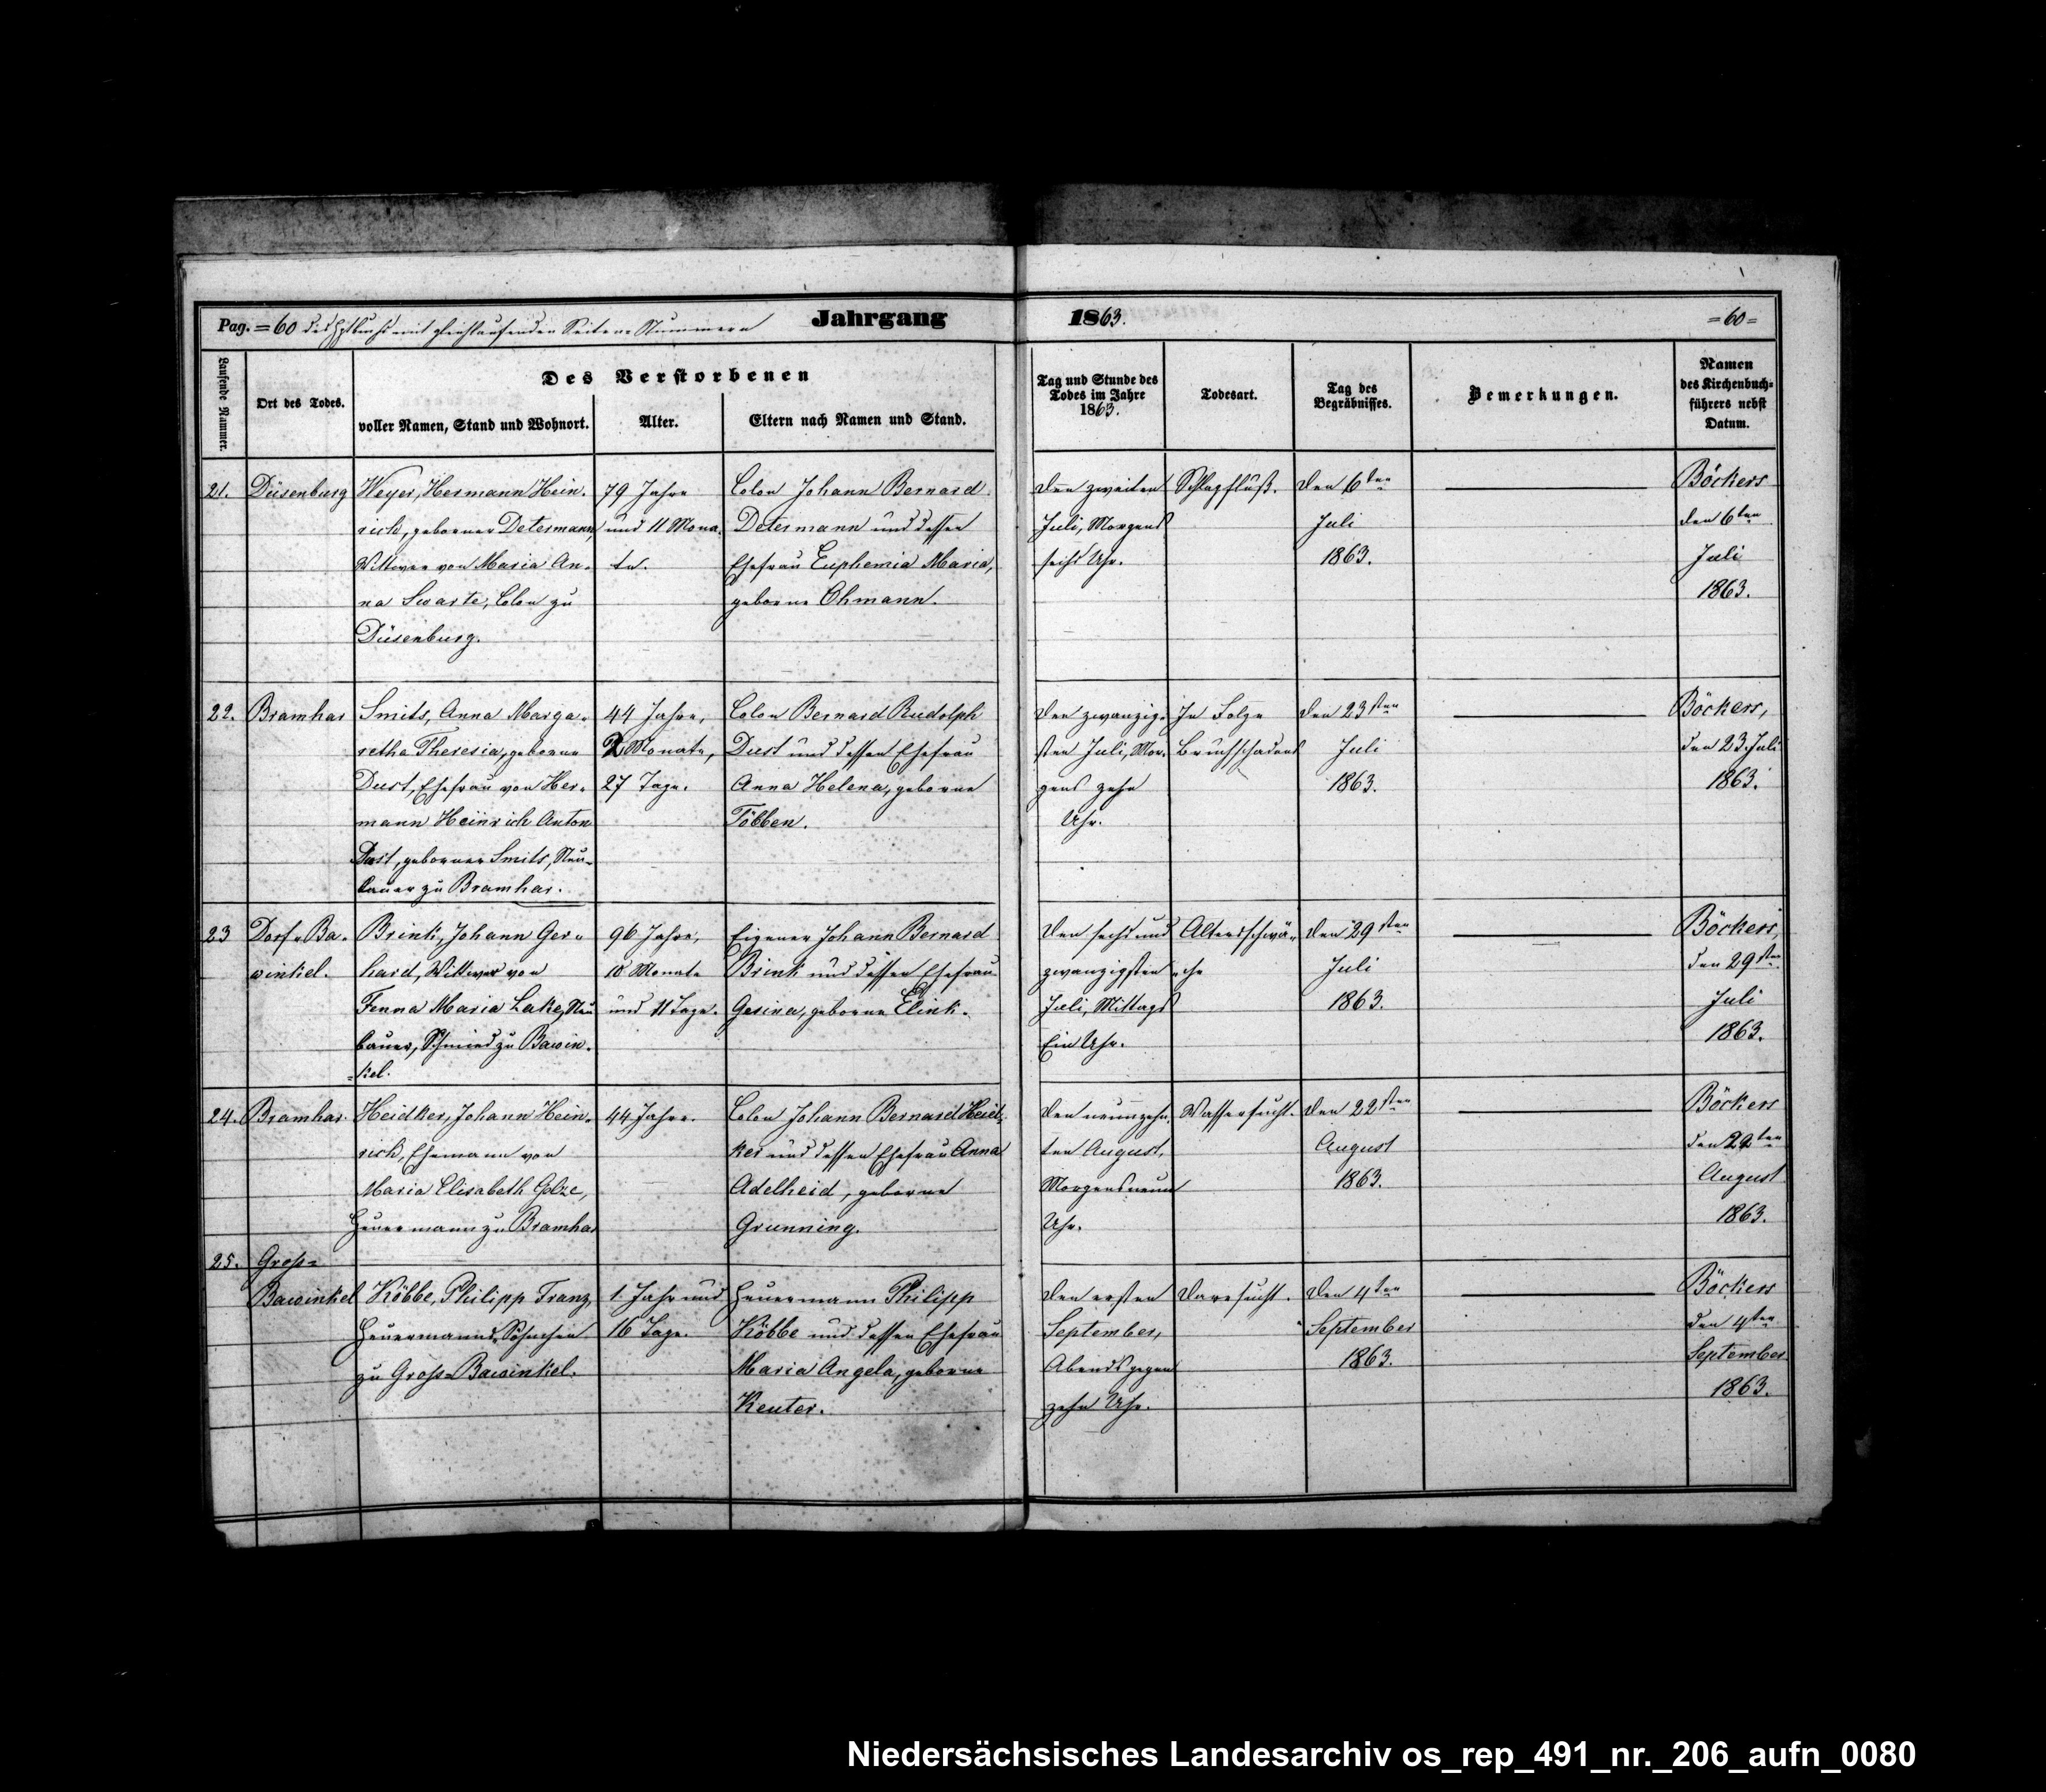 Pag. = 60 des Hptbuchs mit gleichlaufenden Seiten Nummern
Jahrgang 1863.
= 60 =
Laufende Nummer.
Ort des Todes.
Des Verstorbenen
voller Namen, Stand und Wohnort.
Alter.
Eltern nach Namen und Stand.
Tag und Stunde des
Todes im Jahre
1863.
Todesart.
Tag des
Begräbnisses.
Bemerkungen.
Namen
des Kirchenbuch-
führers nebst
Datum.
21.
Düsenburg
Heyer, Hermann Hein-
rich, geborner Determann,
Wittwer von Maria An-
na Swarte, Colon zu
Düsenburg.
79 Jahre
und 11 Mona-
te.
Colon Johann Bernard
Determann und dessen
Ehefrau Euphemia Maria,
geborne Ohmann.
Den zweiten
Juli, Morgens
sechs Uhr.
Schlagfluß.
Den 6ten
Juli
1863.
Böckers
den 6ten
Juli
1863.
22.
Bramhar
Smits, Anna Marga-
retha Theresia, geborne
Dust, Ehefrau von Her-
mann Heinrich Anton
Dust, geborner Smits, Neu-
bauer zu Bramhar.
44 Jahre,
2 Monate,
27 Tage.
Colon Bernard Rudolph
Dust und dessen Ehefrau
Anna Helena, geborne
Többen.
Den zwanzig-
sten Juli, Mor-
gens zehn
Uhr.
In Folge
Bruchschadens
Den 23sten
Juli
1863.
Böckers,
den 23. Juli
1863.
23
Dorf-Ba-
winkel.
Brink, Johann Ger-
hard, Wittwer von
Fenna Maria Lake, Neu
bauer, Schmied zu Bawin-
=kel.
96 Jahre,
10 Monate
und 11 Tage.
Eigener Johann Bernard
Brink und dessen Ehefrau
Gesina, geborne Elink.
Den sechs und
zwanzigsten
Juli, Mittags
Ein Uhr.
Altersschwä-
che
Den 29sten
Juli
1863.
Böckers,
den 29sten
Juli
1863.
24.
Bramhar.
Heidker, Johann Hein-
rich, Ehemann von
Maria Elisabeth Golze,
Heuermann zu Bramhar
44 Jahre.
Colon Johann Bernard Heid-
ker und dessen Ehefrau Anna
Adelheid, geborne
Grunning.
Den neunzehn-
ten August,
Morgens neun
Uhr.
Wassersucht.
Den 22sten
August
1863.
Böckers
den 22ten
August
1863.
25.
Groß=
Bawinkel
Köbbe, Philipp Franz,
Heuermanns-Söhnchen
zu Groß-Bawinkel.
1. Jahr und
16 Tage.
Heuermann Philipp
Köbbe und dessen Ehefrau
Maria Angela, geborne
Keuter.
Den ersten
September,
Abends gegen
zehn Uhr.
Darrsucht.
Den 4ten
September
1863.
Böckers
den 4ten
September
1863.
Niedersächsisches Landesarchiv os_rep_491_nr._206_aufn_0080